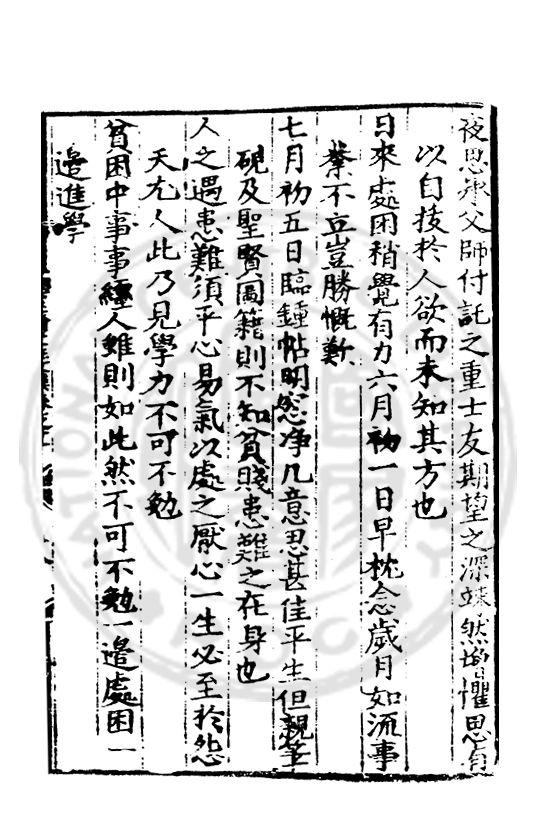 夜思承父師付託之重士友期望之深竦然增懼思有
以自拔於人欲而未知其方也
日來處困稍覺有力六月初一日早枕念歲月如流事
業不立豈勝慨歎
七月初五日臨鍾帖明窓净几意思甚佳平生但親筆
硯及聖賢圖籍則不知貧賤患難之在身也
人之遇患難須平心易氣以處之厭心一生必至於怨
天尤人此乃見學力不可不勉
貧困中事事纏人雖則如此然不可不勉一邉處困一
邉進學